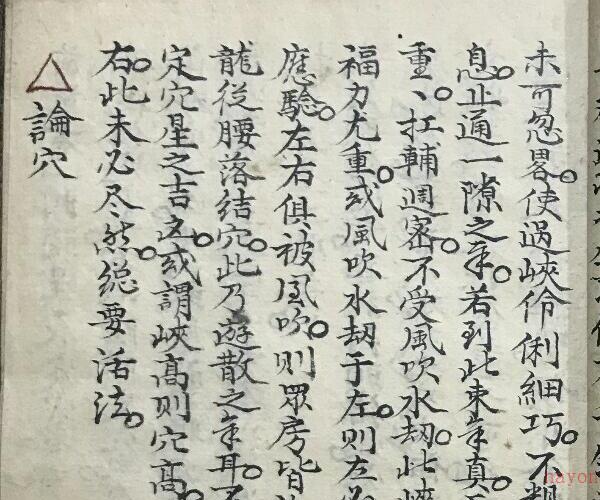 未可忽畧。使過峽伶俐細巧。不
息。止通一隙之氣。若到此束氣真
重重扛輔週密。不受風吹水刼。此峽
福力尤重。或風吹水刼于左。則左
應驗。左右俱被風吹。則眾房皆
龍從腰落結穴。此乃遊散之氣耳。不
定穴星之吉凶。或謂峽高則穴高
右。此未必尽然。総要活法。
△論穴
hayon